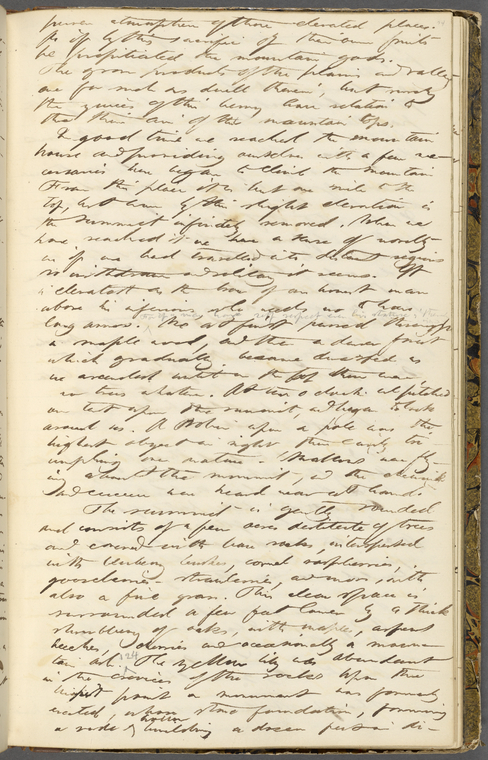 purer atmosphere of those elevated places.
As if by this sacrifice of their own fruits
be propitiated the mountain gods.
The gross products of the plains and valleys
are for such as dwell therein, but surely
the juices of this berry have relation to
the thin air of the mountain tops.
In good time we reached the mountain
house and providing ourselves with a few ne-
cessaries here began to climb the mountain
From this place it is but one mile to the
top, but even by this slight elevation is
the summit infinitely removed. When we
have reached it we have a sense of novelty
as if we had travelled into distant regions
so withdrawn and solitary it seems.
is elevated as the brow of an honest man
above his inferiors who needs no
long arms. We at first passed through
a maple wood, and then a denser forest
which gradually became dwarfed as
we ascended until on the top there was
no trees whatever. At two o'clock we pitched
our tent upon the summit, and began to look
around us. A Robin upon a pole was the
highest object in sight thus easily tri-
umphing over nature. Swallows were fly-
ing about the summit, and the chewink
and cuckoo were heard near at hand.
The summit is gently rounded
and consists of a few acres destitute of trees
and covered with bare rocks, interspersed
with blueberry bushes, cornel raspberries,
gooseberries, strawberries, and moss, with
also a fine grass. This clear space is
surrounded a few feet lower by a thick
shrubbery of oaks, with maples, aspens
beeches, cherries and occasionally a moun-
tain ash. 124 The yellow lily is abundant
in the crevices of the rocks Upon the
highest point a monument was formerly
erected, whose stone foundation, forming
a rude hollow building a dozen feet in di-